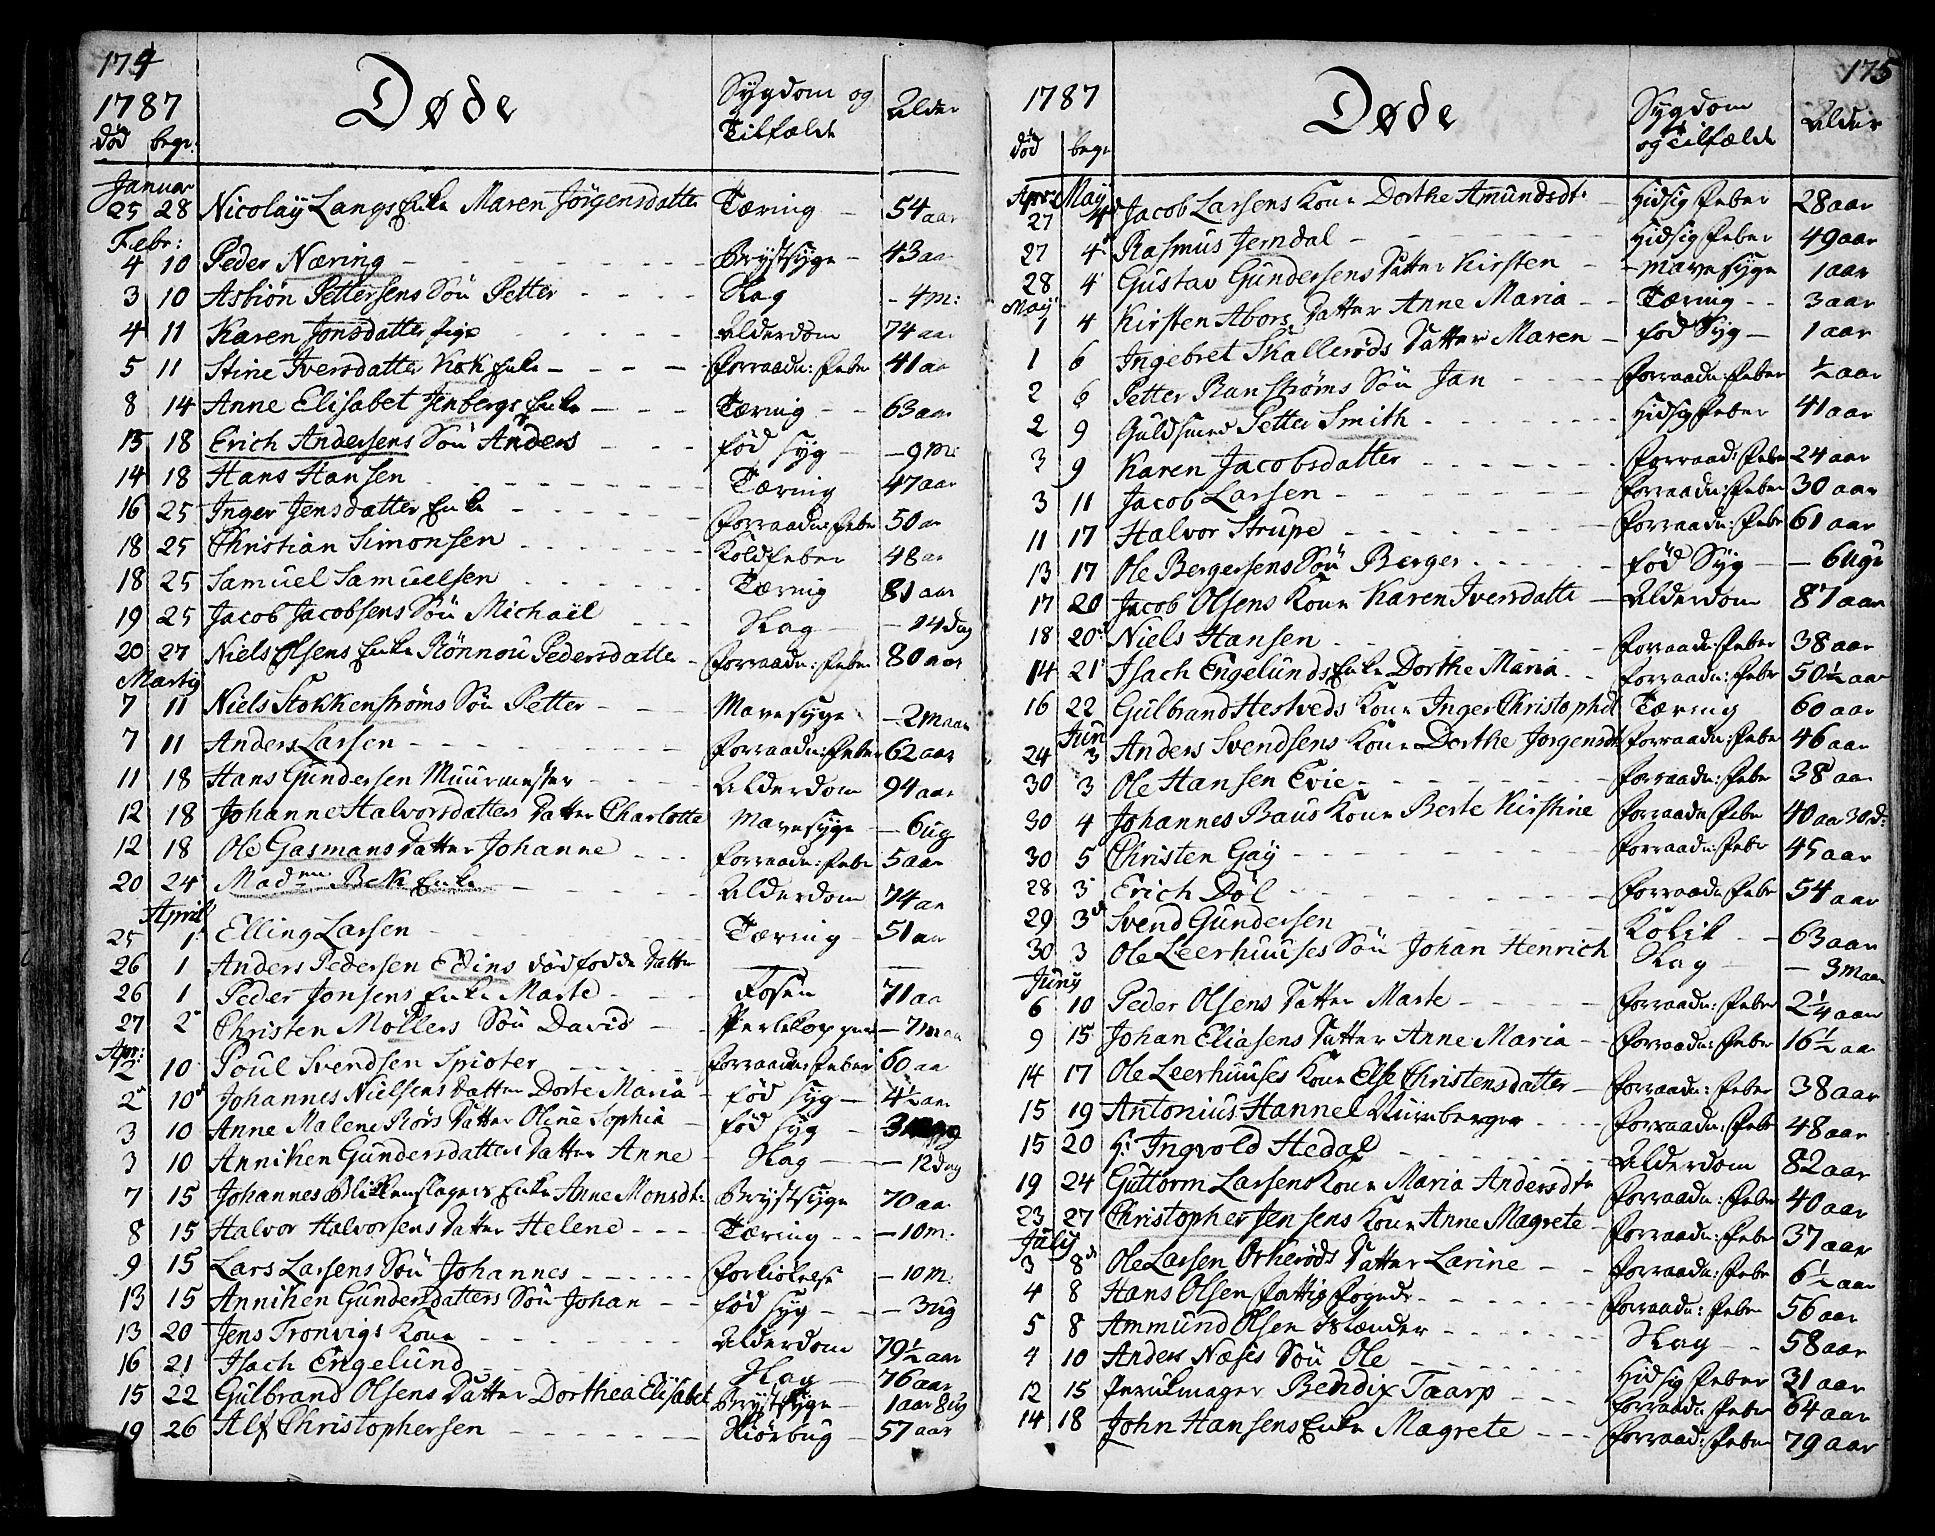 174
1787
Døde
Sygdom og
Tilfælde
Alder
död begr:
Januar
25 28 Nicolaÿ Langs Enke Maren Jörgensdatter Tæring 54 aar
Febr:
4 10 Peder Næring Brystsyge 43 aar
3 10 Asbiön Pettersens Sön Petter Slag 4 m:
4 11 Karen Jonsdatter Pige Alderdom 74 aar
5 11 Stine Iversdatter Kok Enke Forraadn: Feber 41 aar
8 14 Anne Elisabet Jenbergs Enke Tæring 63 aar
13 18 Erich Andersens Sön Anders fød syg 9 m:
14 18 Hans Hansen Tæring 47 aar
16 25 Inger Jensdatter Enke Forraadn: Feber 50 aar
18 25 Christian Simonsen Koldfeber 48 aar
18 25 Samuel Samuelsen Tæring 81 aar
19 25 Jacob Jacobsens Sön Michaël Slag 14 dag
20 27 Niels Olsens Enke Rönnou Pedersdatter Forraadn: Feber 80 aar
Martij
7 11 Niels Stokkenstrøms Sön Petter Mavesyge 2 maan
7 11 Anders Larsen Forraadn: Feber 62 aar
11 18 Hans Gundersen Muurmester Alderdom 94 aar
12 18 Johanne Halvorsdatters Datter Charlotte Mavesyge 6 ug
12 18 Ole Gasmans Datter Johanne Forraadn: Feber 5 aar
20 24 Mad:en Bek Enke Alderdom 74 aar
April
25 1 Elling Larsen Tæring 51 aar
26 1 Anders Pedersen Edins dödfødde Datter
26 1 Peder Jonsens Enke Marte Fosen 71 aar
27 2 Christen Möllers Sön David Perlekopper 7 maan
Apr:
2 10 Poul Svendsen Spioter Forraadn: Feber 60 aar
2 10 Johannes Nielsens Datter Dorte Maria fød syg 4½ aar
3 10 Anne Malene Rörs Datter Oline Sophia fød syg 3
3 10 Anniken Gundersdatters Datter Anne Slag 12 dag
7 15 Johannes Blikkenslagers Enke Anne Monsdt: Brystsyge 70 aar
8 15 Halvor Halvorsens Datter Helene Tæring 10 m:
9 15 Lars Larsens Sön Johannes Forkiölelse 10 m:
13 15 Anniken Gundersdatters Sön Johan fød syg 3 ug
13 20 Jens Tronvigs Kone Alderdom 79½ aar
16 21 Isach Engelund Slag 76 aar
15 22 Gulbrand Olsens Datter Dorthea Elisabet Brystsyge 1 aar 8 ug
19 26 Alf Christophersen Skiörbug 57 aar
175
1787
Døde
Sygdom
og Tilfælde
Alder
död begr
April May
27 4 Jacob Larsens Kone Dorthe Amundsdt: Hidsig Feber 28 aar
27 4 Rasmus Jerndal Hidsig Feber 49 aar
28 4 Gustav Gundersens Datter Kirsten Mavesyge 1 aar
May
1 4 Kirsten Abors Datter Anne Maria Tæring 3 aar
1 6 Ingebret Skallerøds Datter Maren fød Syg 1 aar
2 6 Petter Ranstrøms Sön Jan Forraadn: Feber ½ aar
2 9 Guldsmed Petter Smith Hidsig Feber 41 aar
3 9 Karen Jacobsdatter Forraad: Feber 24 aar
3 11 Jacob Larsen Forraadn: Feber 30 aar
11 17 Halvor Strupe Forraadn: Feber 61 aar
13 17 Ole Bergersens Sön Berger fød Syg 6 uger
17 20 Jacob Olsens Kone Karen Iversdatter Alderdom 87 aar
18 20 Niels Hansen Forraadn: Feber 38 aar
14 21 Isach Engelunds Enke Dorthe Maria Forraadn: Feber 50½ aar
16 22 Gulbrand Hestveds Kone Inger Christophdt Tæring 60 aar
Juny
24 3 Anders Svendsens Kone Dorthe Jorgensdt Forraadn: Feber 46 aar
30 3 Ole Hansen Evie Forraadn: Feber 38 aar
30 4 Johannes Baus Kone Berte Kirstine Forraadn Feber 40 aar 30 d:
30 5 Christen Gay Forraadn: Feber 45 aar
28 3 Erich Döl Forraadn Feber 54 aar
29 3 Svend Gundersen Kolik 63 aar
30 3 Ole Leerhuuses Sön Johan Henrich Slag 3 maan
Juny
6 10 Peder Olsens Datter Marte Forraadn: Feber 2¼ aar
9 15 Johan Eliasens Datter Anne Maria Forraadn: Feber 16½ aar
14 17 Ole Leerhuuses Kone Else Christensdatter Forraadn: Feber 38 aar
15 19 Antonius Hannel Nürnberger Forraadn: Feber 48 aar
15 20 Hr: Ingvold Hedal Alderdom 82 aar
19 24 Guttorm Larsens Kone Maria Andersdtr Forraadn: Feber 40 aar
23 27 Christopher Jensens Kone Anne Magrete Forraadn: Feber 37 aar
Julij
3 8 Ole Larsen Orkerøds Datter Larine Forraadn: Feber 6½ aar
4 8 Hans Olsen Fattig Fogede Forraadn: Feber 56 aar
5 8 Ammund Olsen Islænder Slag 58 aar
4 10 Anders Næses Sön Ole Hidsig Feber 31 aar
12 15 Perukmager Bendix Taarp Forraadn Feber 64 aar
14 18 John Hansens Enke Magrete Forraad: Feber 79 aar